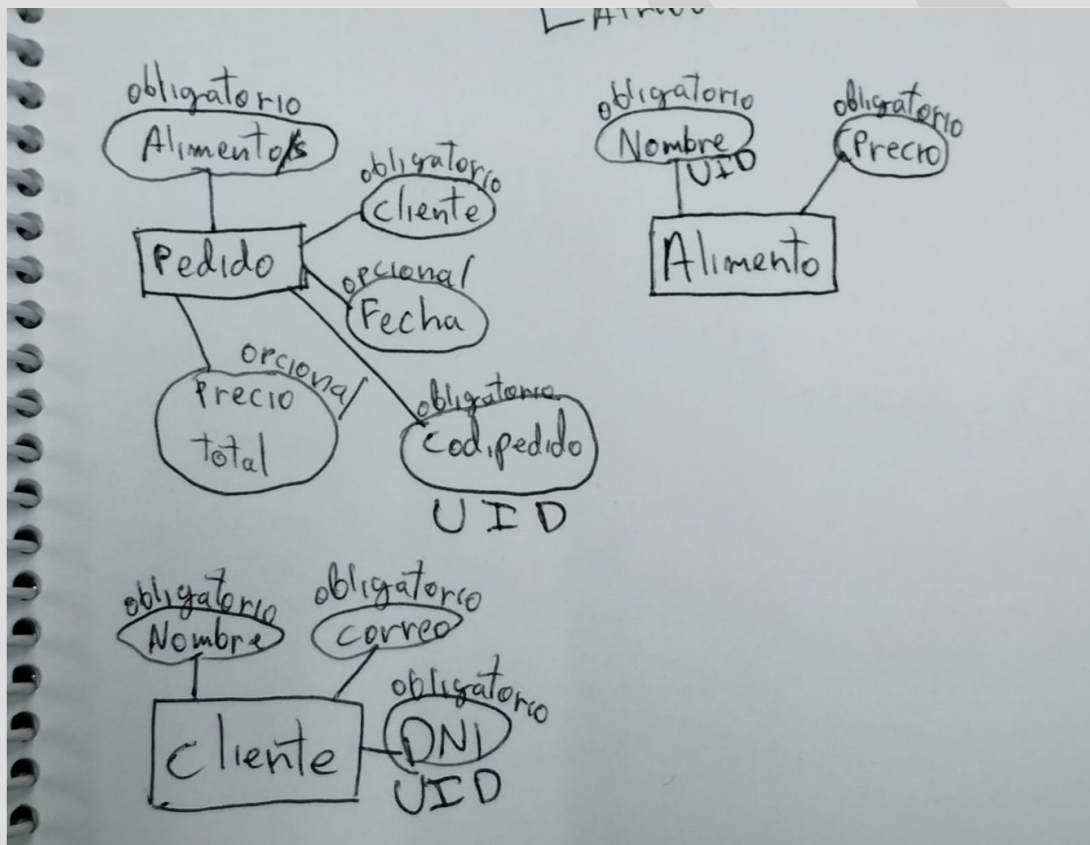 obligatorio
Alimento/s
obligatorio
Cliente
Pedido
opcional
Fecha
opcional
Precio
total
obligatorio
Cod.pedido
UID
obligatorio
Nombre
UID
obligatorio
Precio
Alimento
obligatorio
Nombre
obligatorio
Correo
obligatorio
DNI
UID
Cliente